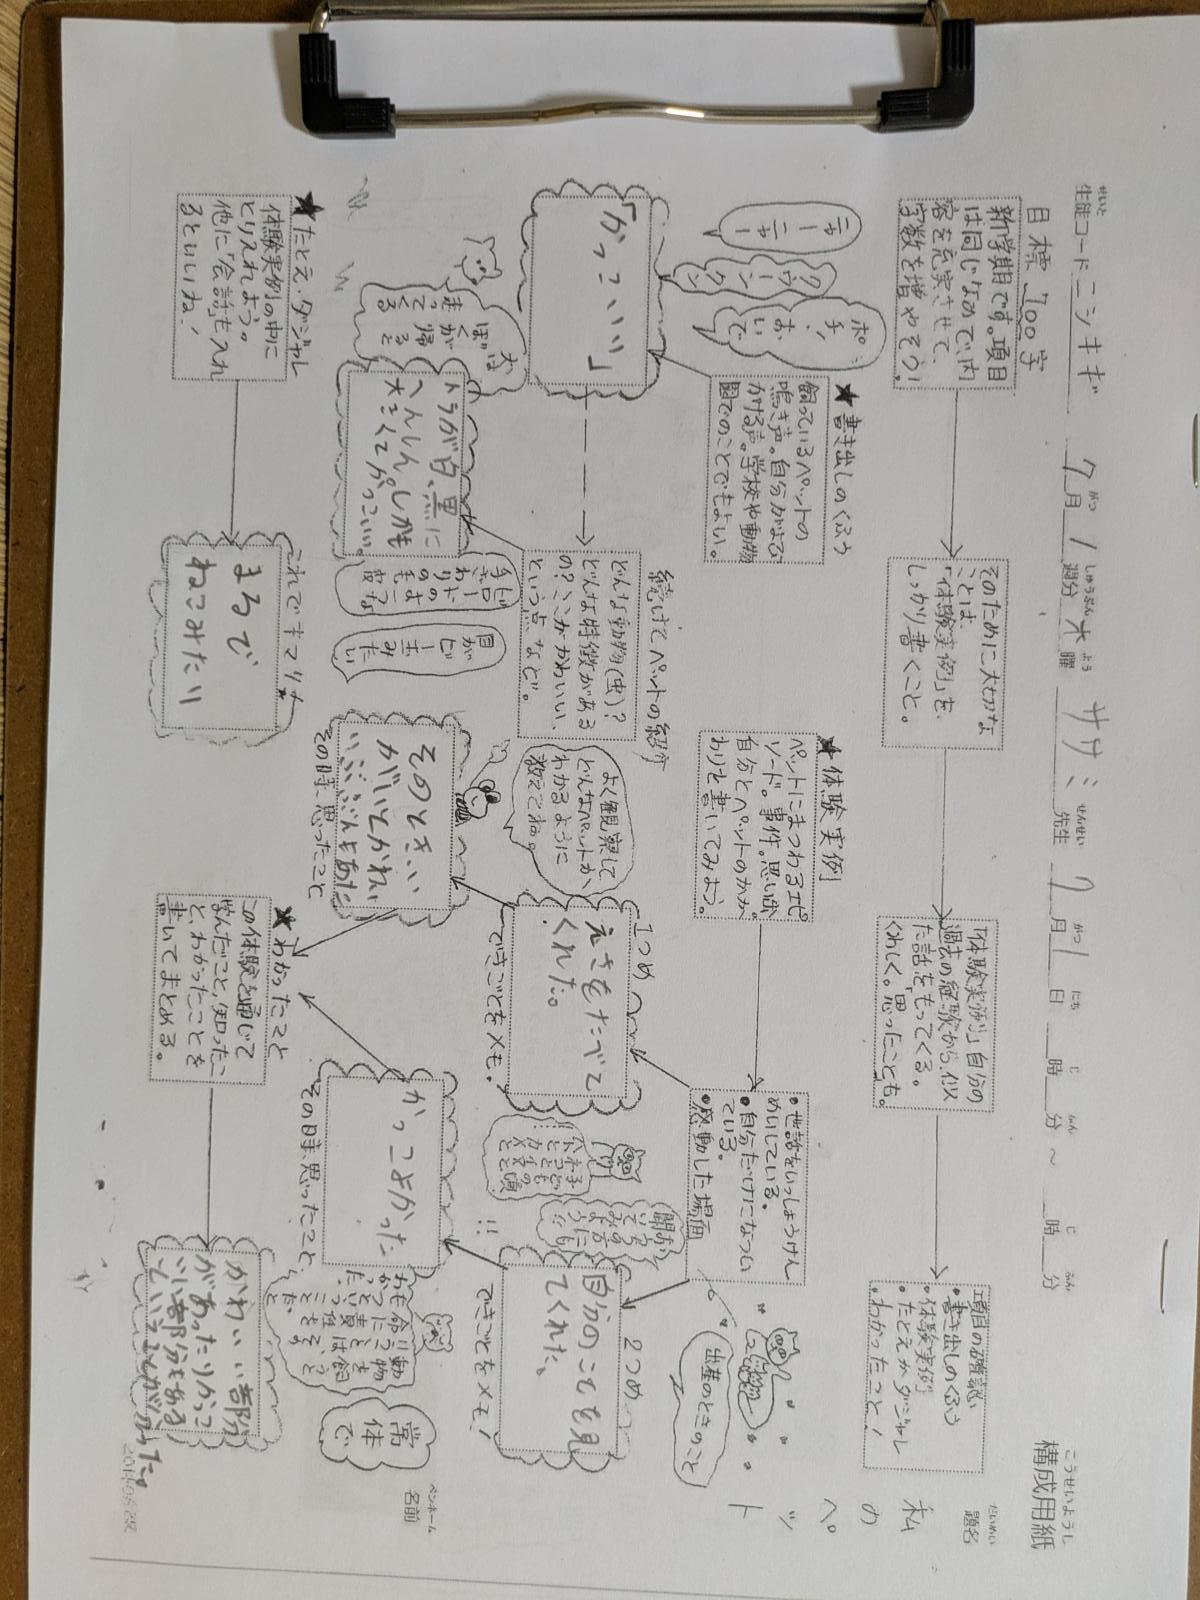 構成用紙
こうせいようし
生徒コード ニシキギ 7月1週分 木曜 サザミ先生 7月1日 時 分 ～ 時 分
せいと
がつ
しゅうぶん
よう
せんせい
がつ
にち
じ
ふん
じ
ふん
題名
だいめい
私のペット
名前
ペンネーム
目標 700字
新学期です。項目
は同じなので、内
容を充実させて、
字数を増やそう！
そのために大切な
ことは、
「体験実例」を、
しっかり書くこと。
「体験実例」自分の
過去の経験から、似
た話をもってくる。
くわしく。「思ったことも。
項目の確認
・書き出しのくふう
・体験実例
・たとえかダジャレ
・わかったこと！
★書き出しのくふう
飼っているペットの
鳴き声。自分がよび
かける声。学校や動物
園でのことでもよい。
ニャー
ニャー
ワン
ポチ！
おいで
「かっこいい」
続けてペットの紹介
どんな動物（虫）？
どんな特徴がある
の？ここがかわいい、
という点 など。
トラが白、黒に
へんしん。しかも
大きくてかっこいい。
犬は
ぼくが
帰ると
走って
くる
手ざわりは
目が
ビー玉
みたい
よく観察して
どんなペットか、
わかるように
教えてね。
★体験実例
ペットにまつわるエピ
ソード。事件。思い出。
自分とペットのかか
わりを書いてみよう。
・世話をいっしょうけん
めいしている。
・自分だけになつい
ている。
・感動した場面
出産のときのこと
1つめ
えさをたべて
くれた。
できごとをメモ。
そのときいい
がいとかわい
いぶぶんもあた
その時、思ったこと
2つめ
自分のことを見
てくれた、
できごとをメモ！
かっこよかった
その時、思ったこと、
常体で
★たとえ・ダジャレ
体験実例の中に
とり入れよう。
他に「会話」も入れ
るといいね！
これでキマリ！★
まるで
ねこみたい
★わかったこと
この体験を通じて
学んだこと、知ったこ
と、わかったことを
書いてまとめる。
かわいい部分
があったりかっこ
いい部分もある
ということがわかった。